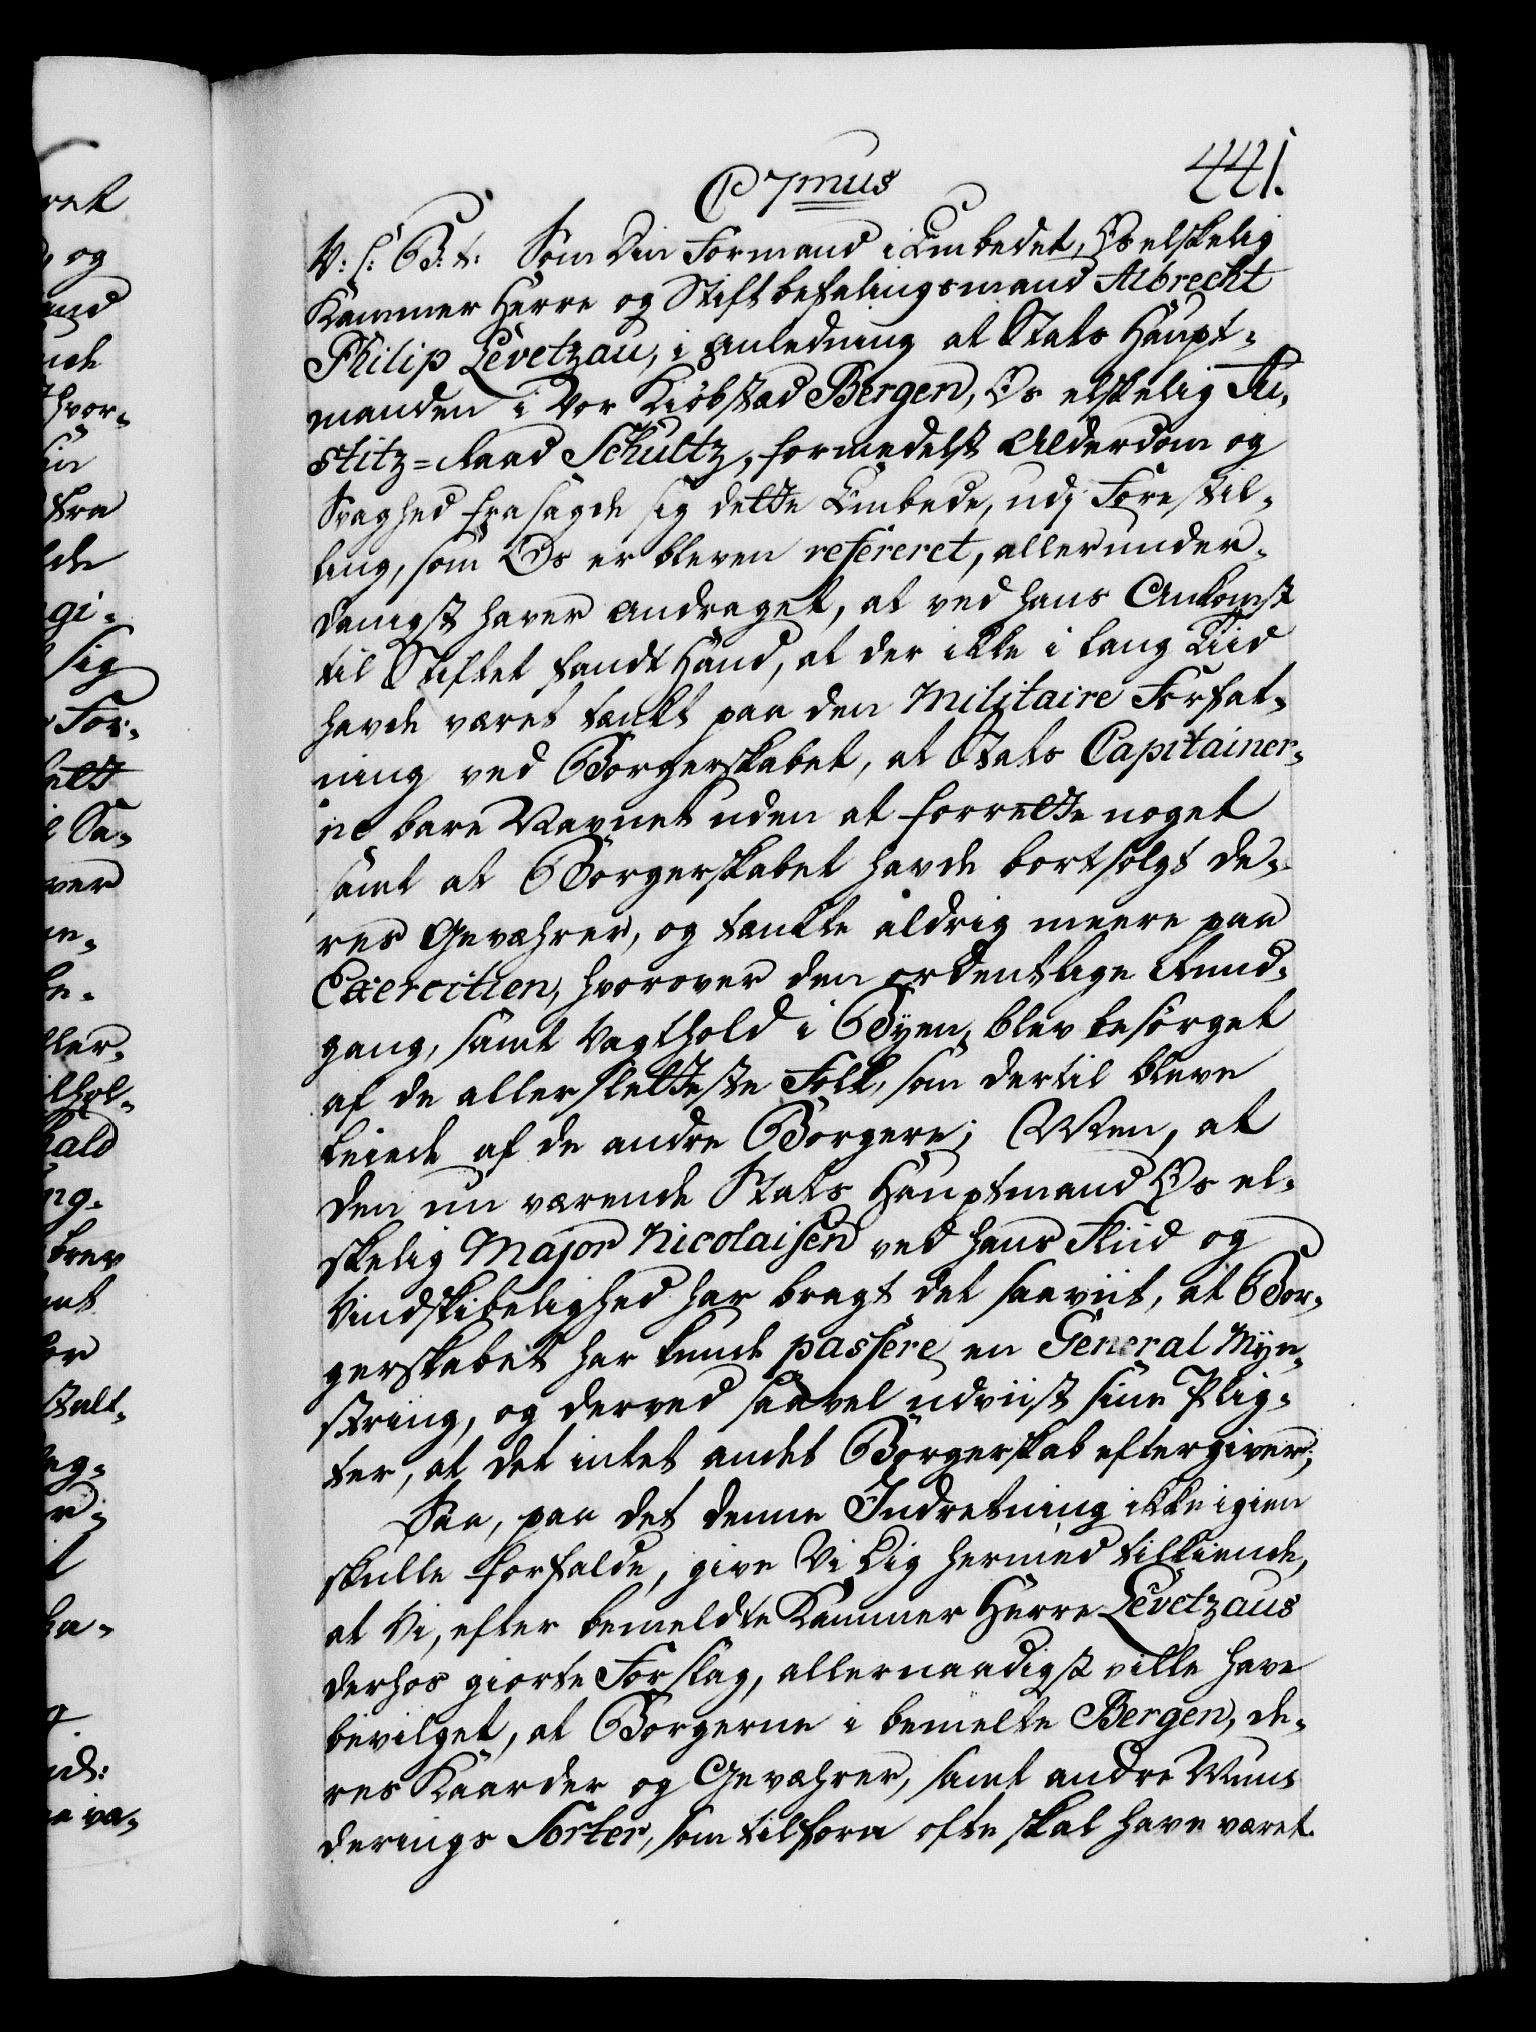 441.
C 7mus
V: S: B: t: Som Din Formand i Embedet, Os elskelig
Kammer Herre og Stiftbefalingsmand Albrecht
Philip Levetzau, i Anledning at Stats Haupt-
manden i Vor Kiöbstad Bergen, Os elskelig Ju-
stitz=Raad Schultz, formedelst Alderdom og
Svaghed frasagde sig dette Embede, udj Forestil-
ling, som Os er bleven refereret, allerunder-
danigst haver andraget, at ved hans Ankomst
til Stiftet fandt Hand, at der ikke i lang Tiid
havde været tænkt paa den Militaire Forfat-
ning ved Borgerskabet, at Stats Capitainer-
ne bare Navnet uden at forrette noget
samt at Borgerskabet havde bortsolgt de-
res Gevæhrer, og tænkte aldrig meere paa
Exercitien, hvorover den ordentlige Rund-
gang, samt Vagthold i Byen, blev besörget
af de allersletteste Folk, som dertil bleve
leiede af de andre Borgere; Men, at
den nu værende Stats Hauptmand Os el-
skelig Major Nicolaisen ved hans Fliid og
Vindskibelighed har bragt det saaviit, at Bor-
gerskabet har kundt passere en General Myn-
string, og derved saavel udviist sine Plig-
ter, at det intet andet Borgerskab eftergiver;
Saa, paa det denne Indretning ikke igien
skulle forfalde, give Vi Dig hermed tilkiende,
at Vi, efter bemeldte Kammer Herre Levetzaus
derhos giorte Forslag, allernaadigst ville have
bevilget, at Borgerne i bemelte Bergen, de-
res Kaarder og Gevæhrer, samt andre Mun-
derings Sorter, som tilforn ofte skal have været